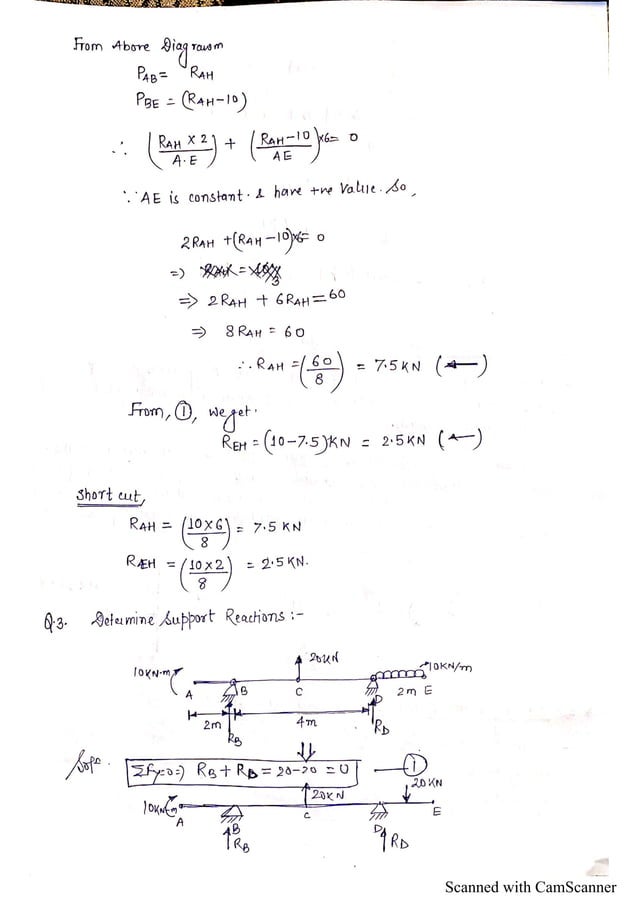 From Above Diagrawm
P_AB = R_AH
P_BE = (R_AH-10)
∴ (R_AH × 2 / A·E) + (R_AH-10 / AE)×6 = 0
∵ AE is constant. & have +ve Value. So,
2R_AH + (R_AH-10)×6 = 0
=>
=> 2R_AH + 6R_AH = 60
=> 8R_AH = 60
∴ R_AH = (60/8) = 7.5 KN (←)
From, ①, we get.
R_EH = (10-7.5)KN = 2.5 KN (←)
Short cut,
R_AH = (10×6/8) = 7.5 KN
R_EH = (10×2/8) = 2.5 KN.
Q.3. Determine Support Reactions :-
20KN
10KN-m
10KN/m
A B C D 2m E
2m 4m
R_B R_D
ΣFy=0=) R_B + R_D = 20-20 = 0 ①
20KN 20KN
10KN-m
A B C D E
R_B R_D
Scanned with CamScanner